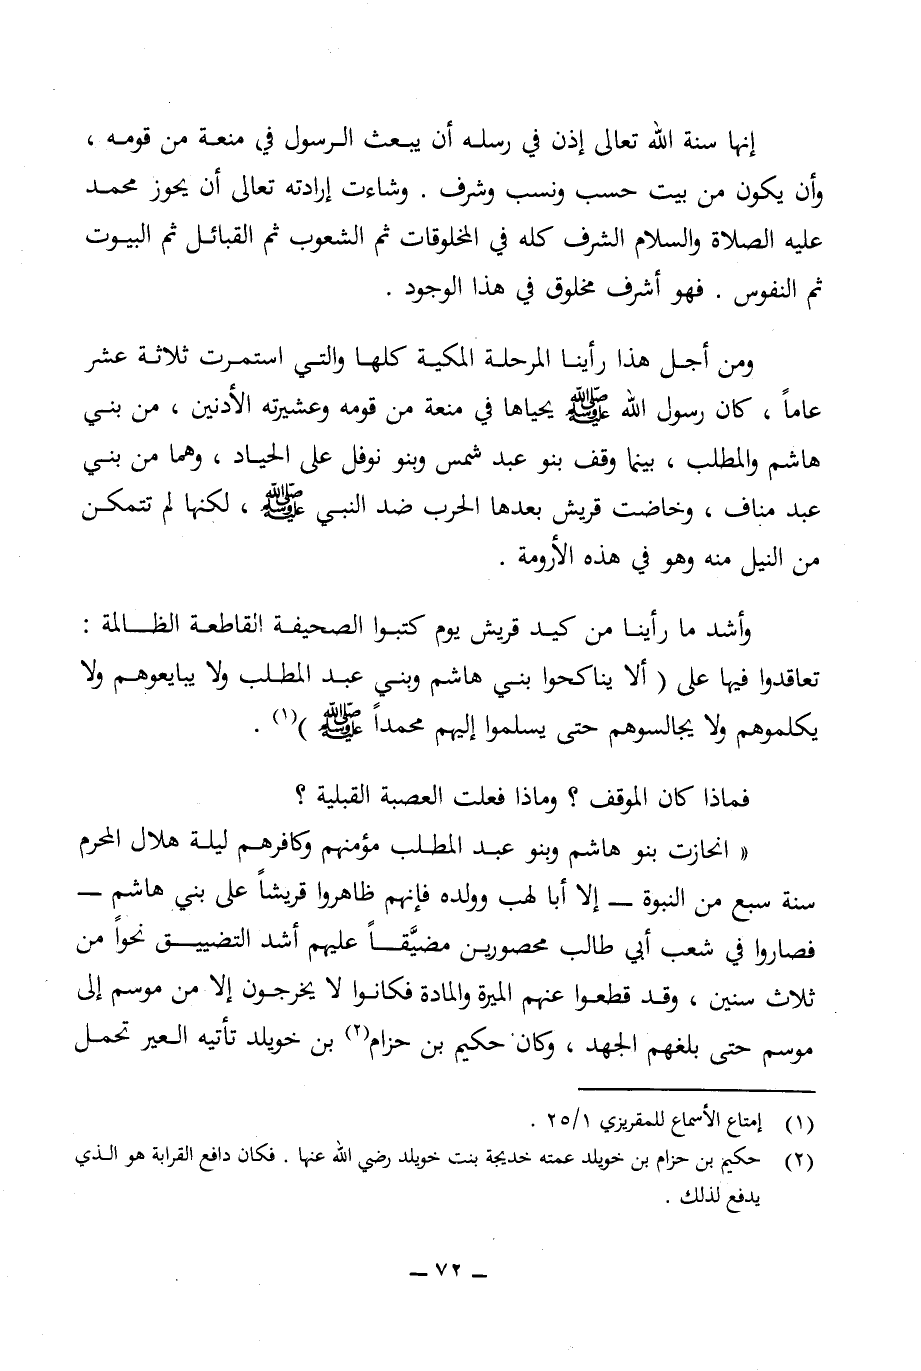 إنها سنة الله تعالى إذن في رسله أن يبعث الرسول في منعة من قومه ،
وأن يكون من بيت حسب ونسب وشرف . وشاءت إرادته تعالى أن يحوز محمد
عليه الصلاة والسلام الشرف كله في المخلوقات ثم الشعوب ثم القبائل ثم البيوت
ثم النفوس . فهو أشرف مخلوق في هذا الوجود .
ومن أجل هذا رأينا المرحلة المكية كلها والتي استمرت ثلاثة عشر
عاماً ، كان رسول الله ﷺ يحياها في منعة من قومه وعشيرته الأدنين ، من بني
هاشم والمطلب ، بينما وقف بنو عبد شمس وبنو نوفل على الحياد ، وهما من بني
عبد مناف ، وخاضت قريش بعدها الحرب ضد النبي ﷺ ، لكنها لم تتمكن
من النيل منه وهو في هذه الأرومة .
وأشد ما رأينا من كيد قريش يوم كتبوا الصحيفة القاطعة الظالمة :
تعاقدوا فيها على ( ألا يناكحوا بني هاشم وبني عبد المطلب ولا يبايعوهم ولا
يكلموهم ولا يجالسوهم حتى يسلموا إليهم محمداً ﷺ )(١) .
فماذا كان الموقف ؟ وماذا فعلت العصبة القبلية ؟
« انحازت بنو هاشم وبنو عبد المطلب مؤمنهم وكافرهم ليلة هلال المحرم
سنة سبع من النبوة ـ إلا أبا لهب وولده فإنهم ظاهروا قريشاً على بني هاشم ـ
فصاروا في شعب أبي طالب محصورين مضيَّقاً عليهم أشد التضييق نحواً من
ثلاث سنين ، وقد قطعوا عنهم الميرة والمادة فكانوا لا يخرجون إلا من موسم إلى
موسم حتى بلغهم الجهد ، وكان حكيم بن حزام(٢) بن خويلد تأتيه العير تحمل
(١) إمتاع الأسماع للمقريزي ٢٥/١ .
(٢) حكيم بن حزام بن خويلد عمته خديجة بنت خويلد رضي الله عنها . فكان دافع القرابة هو الذي
يدفع لذلك .
ـ ٧٢ ـ